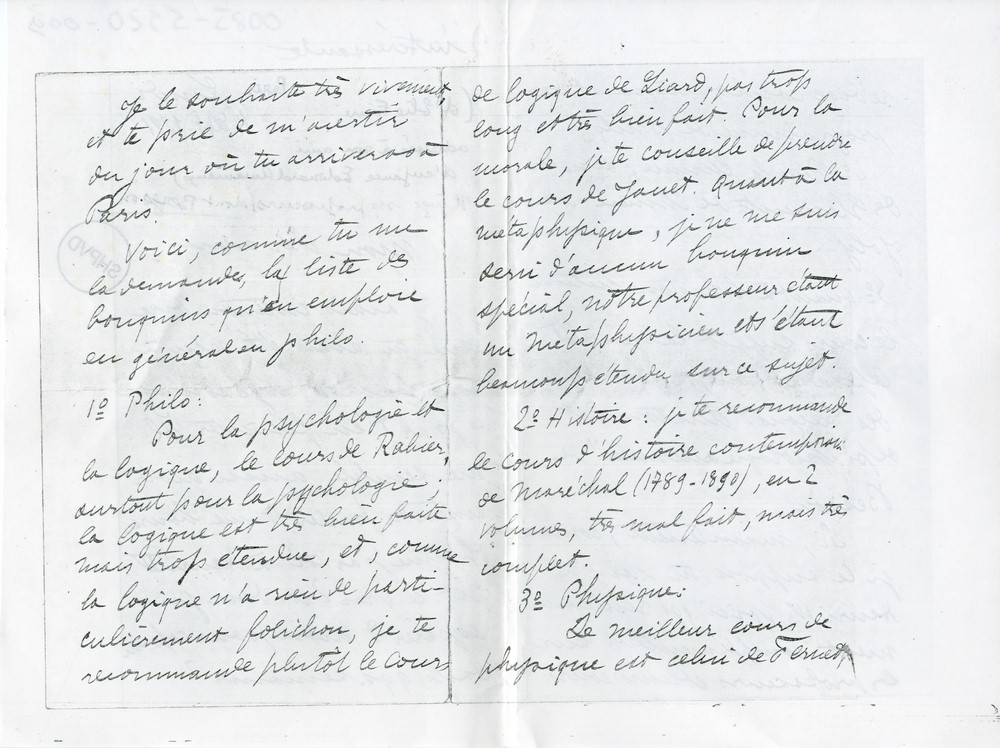 Je le souhaite très vivement,
et te prie de m'avertir
du jour où tu arriveras à
Paris.
Voici, comme tu me
la demandes, la liste des
bouquins qu'on emploie
en général en philo.
1º Philo:
Pour la psychologie et
la logique, le cours de Rabier,
surtout pour la psychologie;
la logique est très bien faite
mais trop étendue, et, comme
la logique n'a rien de parti-
culièrement folichon, je te
recommande plutôt le cours
de logique de Liard, pas trop
long et très bien fait. Pour la
morale, je te conseille de prendre
le cours de Janet. Quant à la
métaphysique, je ne me suis
servi d'aucun bouquin
spécial, notre professeur étant
un métaphysicien et s'étant
beaucoup étendu sur ce sujet.
2º Histoire: je te recommande
le cours d'histoire contemporaine
de Maréchal (1789-1890), en 2
volumes, très mal fait, mais très
complet.
3º Physique:
Le meilleur cours de
physique est celui de Fernet,
SHPVD
0083-5320-009